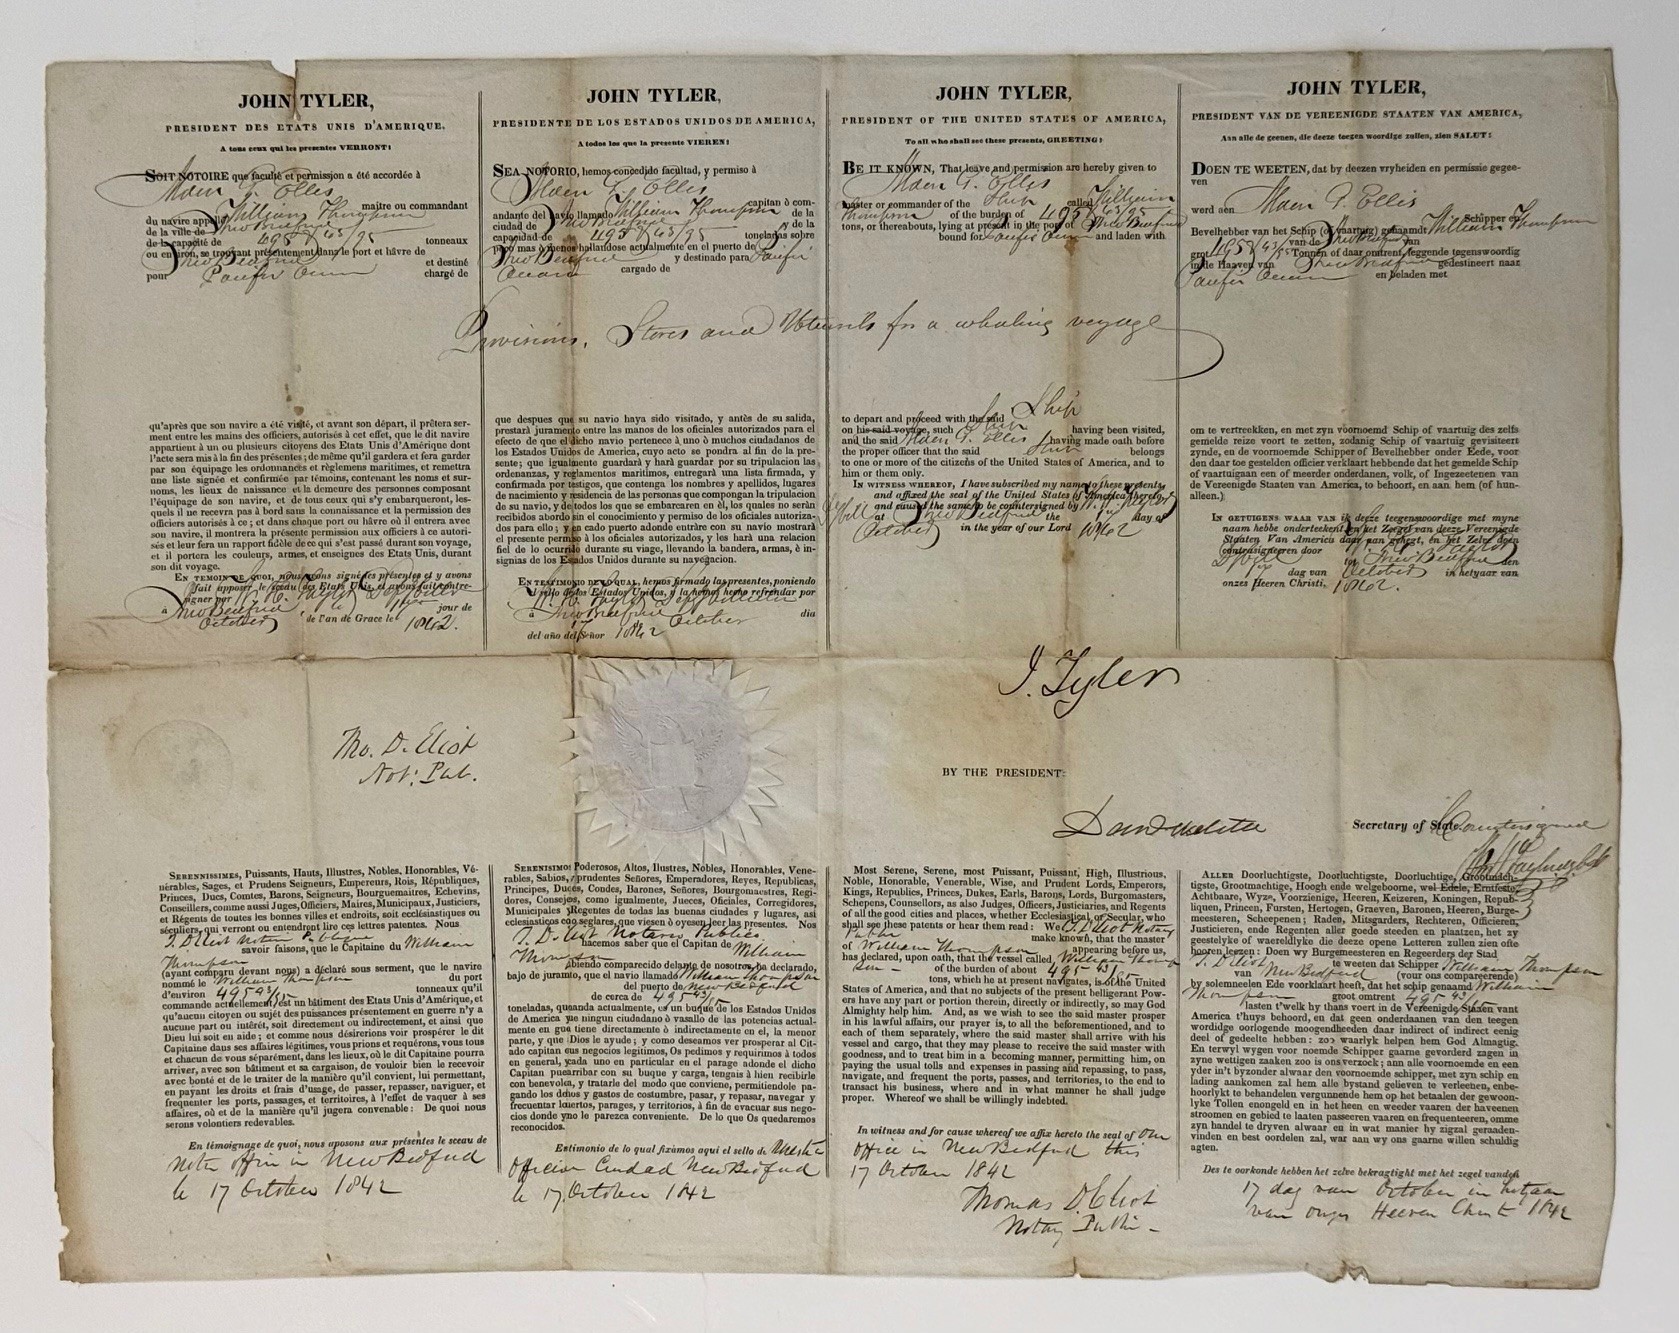 JOHN TYLER,
PRESIDENT DES ETATS UNIS D'AMERIQUE,
A tous ceux qui les presentes VERRONT:
SOIT NOTOIRE que faculté et permission a été accordée à
Alden G. Ellis
maitre ou commandant
du navire appellé William Thompson
de la ville de New Bedford
de la capacité de 495 43/95 tonneaux
ou environ, se trouvant présentement dans le port et hâvre de
New Bedford et destiné
pour Pacific Ocean chargé de
JOHN TYLER,
PRESIDENTE DE LOS ESTADOS UNIDOS DE AMERICA,
A todos los que la presente VIEREN:
SEA NOTORIO, hemos concedido facultad, y permiso à
Alden G. Ellis
capitan ò com-
andante del navio llamado William Thompson de la
ciudad de New Bedford y de la
capacidad de 495 43/95 toneladas sobre
poco mas ò ménos hallandose actualmente en el puerto de
New Bedford y destinado para Pacific
Ocean cargado de
JOHN TYLER,
PRESIDENT OF THE UNITED STATES OF AMERICA,
To all who shall see these presents, GREETING:
BE IT KNOWN, That leave and permission are hereby given to
Alden G. Ellis
master or commander of the Ship called William
Thompson of the burden of 495 43/95
tons, or thereabouts, lying at present in the port of New Bedford
bound for Pacific Ocean and laden with
JOHN TYLER,
PRESIDENT VAN DE VEREENIGDE STAATEN VAN AMERICA,
Aan alle de geenen, die deeze teegen woordige zullen, zien SALUT:
DOEN TE WEETEN, dat by deezen vryheiden en permissie gegee-
ven
werd aen Alden G. Ellis
Schipper of
Bevelhebber van het Schip (of vaartuig) genaamdt William Thompson
van de New Bedford van
grot 495 43/95 Tonnen of daar omtrent, leggende tegenswoordig
in de Haaven van New Bedford gedestineert naar
Pacific Ocean en beladen met
Provisions, Stores and Utensils for a whaling voyage
qu'après que son navire a été visité, et avant son départ, il prêtera ser-
ment entre les mains des officiers, autorisés à cet effet, que le dit navire
appartient à un ou plusieurs citoyens des Etats Unis d'Amérique dont
l'acte sera mis à la fin des présentes; de même qu'il gardera et fera garder
par son équipage les ordonnances et règlemens maritimes, et remettra
une liste signée et confirmée par témoins, contenant les noms et sur-
noms, les lieux de naissance et la demeure des personnes composant
l'équipage de son navire, et de tous ceux qui s'y embarqueront, les-
quels il ne recevra pas à bord sans la connaissance et la permission des
officiers autorisés à ce; et dans chaque port ou hâvre où il entrera avec
son navire, il montrera la présente permission aux officiers à ce autori-
sés et leur fera un rapport fidèle de ce qui s'est passé durant son voyage,
et il portera les couleurs, armes, et enseignes des Etats Unis, durant
son dit voyage.
EN TEMOIN DE QUOI, nous avons signé les présentes et y avons
fait apposer le sceau des Etats Unis, et avons fait contre-
signer par
à New Bedford le jour de
October de l'an de Grace le 1842.
que despues que su navio haya sido visitado, y antès de su salida,
prestará juramento entre las manos de los oficiales autorizados para el
efecto de que el dicho navio pertenece à uno ò muchos ciudadanos de
los Estados Unidos de America, cuyo acto se pondra al fin de la pre-
sente; que igualmente guardará y hará guardar por su tripulacion las
ordenanzas, y reglamentos maritimos, entregará una lista firmada, y
confirmada por testigos, que contenga los nombres y apelidos, lugares
de nacimiento y residencia de las personas que compongan la tripulacion
de su navio, y de todos los que se embarcaren en èl, los quales no serán
recibidos abordo sin el conocimiento y permiso de los oficiales autoriza-
dos para ello; y en cado puerto adonde entràre con su navio mostrará
el presente permiso à los oficiales autorizados, y les hará una relacion
fiel de lo ocurrido durante su viage, llevando la bandera, armas, è in-
signias de los Estados Unidos durante su navegacion.
EN TESTIMONIO DE LO QUAL, hemos firmado las presentes, poniendo
el sello de los Estados Unidos, y la hemos hemo refrendar por
à New Bedford October dia
del año del Señor 1842
to depart and proceed with the said Ship
on his said voyage, such Ship having been visited,
and the said Alden G. Ellis having made oath before
the proper officer that the said Ship belongs
to one or more of the citizens of the United States of America, and to
him or them only.
IN WITNESS WHEREOF, I have subscribed my name to these presents,
and affixed the seal of the United States of America thereto,
and caused the same to be countersigned by
at New Bedford the day of
October in the year of our Lord 1842
om te vertrekken, en met zyn voornoemd Schip of vaartuig des zelfs
gemelde reize voort te zetten, zodanig Schip of vaartuig gevisiteert
zynde, en de voornoemde Schipper of Bevelhebber onder Eede, voor
den daar toe gestelden officier verklaart hebbende dat het gemelde Schip
of vaartuigaan een of meerder onderdanen, volk, of Ingezeetenen van
de Vereenigde Staaten van America, to behoort, en aan hem (of hun-
alleen.)
IN GETUIGENS WAAR VAN ik deeze teegenswoordige met myne
naam hebbe onderteekent en het Zeegel van deeze Vereenigde
Staaten Van America daar aan gehegt, en het Zelve doen
contrasigneren door
te New Bedford den
dag van October in het yaar van
onzes Heeren Christi, 1842.
J. Tyler
Tho. D. Eliot
Not: Pub.
BY THE PRESIDENT:
Dan Webster
Secretary of State.
Countersigned
SERENNISSIMES, Puissants, Hauts, Illustres, Nobles, Honorables, Vé-
nérables, Sages, et Prudens Seigneurs, Empereurs, Rois, Républiques,
Princes, Ducs, Comtes, Barons, Seigneurs, Bourguemaitres, Echevins,
Conseillers, comme aussi Juges, Officiers, Maires, Municipaux, Justiciers,
et Régents de toutes les bonnes villes et endroits, soit ecclésiastiques ou
séculiers, qui verront ou entendront lire ces lettres patentes. Nous
T. D. Eliot Notaire Publique
savoir faisons, que le Capitaine du William
Thompson
(ayant comparu devant nous) a déclaré sous serment, que le navire
nommé le William Thompson du port
d'environ 495 43/95 tonneaux qu'il
commande actuellement, est un bâtiment des Etats Unis d'Amérique, et
qu'aucun citoyen ou sujet des puissances présentement en guerre n'y a
aucune part ou intérêt, soit directement ou indirectement, et ainsi que
Dieu lui soit en aide; et comme nous désirerions voir prospérer le dit
Capitaine dans ses affaires légitimes, vous prions et requérons, vous tous
et chacun de vous séparément, dans les lieux, où le dit Capitaine pourra
arriver, avec son bâtiment et sa cargaison, de vouloir bien le recevoir
avec bonté et de le traiter de la manière qu'il convient, lui permettant,
en payant les droits et frais d'usage, de passer, repasser, naviguer, et
frequenter les ports, passages, et territoires, à l'effet de vaquer à ses
affaires, où et de la manière qu'il jugera convenable: De quoi nous
serons volontiers redevables.
En témoignage de quoi, nous aposons aux présentes le sceau de
notre office in New Bedford
le 17 October 1842
SERENISIMOS Poderosos, Altos, Ilustres, Nobles, Honorables, Vene-
rables, Sabios, y prudentes Señores, Emperadores, Reyes, Republicas,
Principes, Duces, Condes, Barones, Señores, Bourgomaestres, Regi-
dores, Consejos, como igualmente, Jueces, Oficiales, Corregidores,
Municipales y Regentes de todas las buenas ciudades y lugares, asi
eclesiasticos como seglares, que viesen ò oyesen leer las presentes. Nos
T. D. Eliot Notario Publico
hacemos saber que el Capitan de William
Thompson
abiendo comparecido delante de nosotros, ha declarado,
bajo de juranto, que el navio llamado William Thompson
del puerto de New Bedford
de cerca de 495 43/95
toneladas, quanda actualmente, es un buque de los Estados Unidos
de America que ningun ciudadano ò vasallo de las potencias actual-
mente en gue tiene directamente ò indirectamente en el, la menor
parte, y que Dios le ayude; y como deseamos ver prosperar al Cit-
ado capitan en sus negocios legitimos, Os pedimos y requirimos à todos
en general, y cada uno en particular en el parage adonde el dicho
Capitan puearribar con su buque y carga, tengais à bien recibirle
con benevola, y tratarle del modo que conviene, permitiendole pa-
gando los dchos y gastos de costumbre, pasar, y repasar, navegar y
frecuentar puertos, parages, y territorios, à fin de evacuar sus nego-
cios donde y como le parezca conveniente. De lo que Os quedaremos
reconocidos.
Entimonio de lo qual fixámos aqui el sello de nuestra
Officina Ciudad New Bedford
le 17 October 1842
Most Serene, Serene, most Puissant, Puissant, High, Illustrious,
Noble, Honorable, Venerable, Wise, and Prudent Lords, Emperors,
Kings, Republics, Princes, Dukes, Earls, Barons, Lords, Burgomasters,
Schepens, Counsellors, as also Judges, Officers, Justiciaries, and Regents
of all the good cities and places, whether Ecclesiastical or Secular, who
shall see these patents or hear them read: We T. D. Eliot Notary
Public make known, that the master
of William Thompson appearing before us,
has declared, upon oath, that the vessel called, William Thomp
son of the burden of about 495 43/95
tons, which he at present navigates, is of the United
States of America, and that no subjects of the present belligerant Pow-
ers have any part or portion therein, directly or indirectly, so may God
Almighty help him. And, as we wish to see the said master prosper
in his lawful affairs, our prayer is, to all the beforementioned, and to
each of them separately, where the said master shall arrive with his
vessel and cargo, that they may please to receive the said master with
goodness, and to treat him in a becoming manner, permitting him, on
paying the usual tolls and expenses in passing and repassing, to pass,
navigate, and frequent the ports, passes, and territories, to the end to
transact his business, where and in what manner he shall judge
proper. Whereof we shall be willingly indebted.
In witness and for cause whereof we affix hereto the seal of Our
office in New Bedford this
17 October 1842
Thomas D. Eliot
Notary Public
ALLER Doorluchtigste, Doorluchtigste, Doorluchtige, Grootmach-
tigste, Grootmachtige, Hoogh ende welgeboorne, wel Edele, Erntfeste,
Achtbaare, Wyze, Voorzienige, Heeren, Keizeren, Koningen, Repub-
liquen, Princen, Fursten, Hertogen, Graeven, Baronen, Heeren, Burge-
meesteren, Scheepenen; Raden, Mitsgarders, Rechteren, Officieren,
Justicieren, ende Regenten aller goede steeden en plaatzen, het zy
geestelyke of waereldlyke die deeze opene Letteren zullen zien ofte
hooren leezen: Doen wy Burgemeesteren en Regeerders der Stad
T. D. Eliot te weeten dat Schipper William Thompson
van New Bedford (voor ons compareerende)
by solemneelen Ede voorklaart heeft, dat het schip genaamd William
Thompson groot omtrent 495 43/95
lasten t'welk hy thans voert in de Vereenigde Staaten vant
America t'huys behoord, en dat geen onderdaanen van den teegen
wordidge oorlogende moogendheeden daar indirect of indirect eenig
deel of gedeelte hebben: zoo waarlyk helpen hem God Almagtig.
En terwyl wygen voor noemde Schipper gaarne gevorderd zagen in
zyne wettigen zaaken zoo is ons verzock; aan alle voornoemde en een
yder in't byzonder alwaar den voornoemde schipper, met zyn schip en
lading aankomen zal hem alle bystand gelieven te verleenen, enbe-
hoorlykt te behandelen vergunnende hem op het betaalen der gewoon-
lyke Tollen enongeld en in het heen en weeder vaaren der haveenen
stroomen en gebied te laaten passeeren vaaren en frequenteeren, omme
zyn handel te dryven alwaar en in wat manier hy zigzal geraaden-
vinden en best oordelen zal, war aan wy ons gaarne willen schuldig
agten.
Des te oorkonde hebben het zelve bekragtight met het zegel vanden
17 dag van October in hetyaar
van onzes Heeren Christ 1842